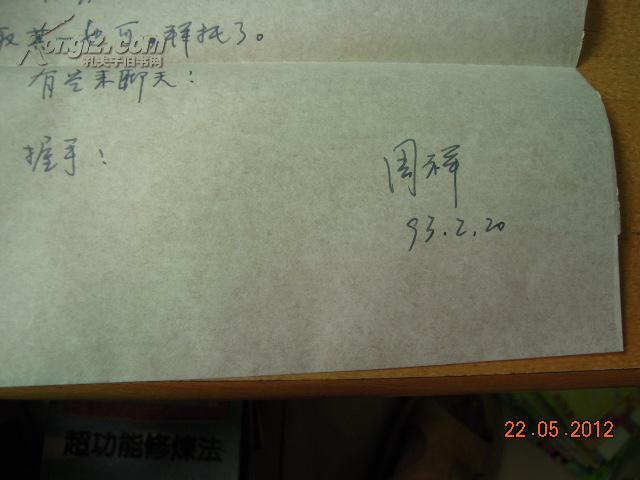 也可。拜托了。
有兴来聊天!
握手!
周祥
93.2.20
孔夫子旧书网
超功能修炼法
22.05.2012